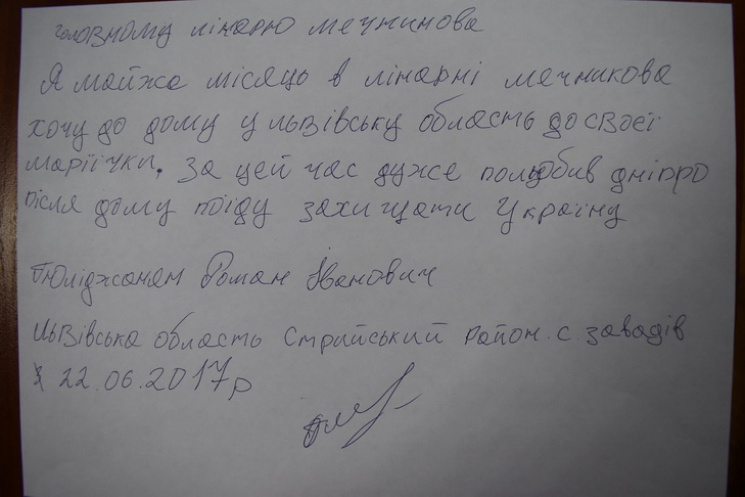 головному лікарю мечникова
Я майжа місяць в лікарні мечникова
хочу до дому у львівську область до своєї
маріїчки. за цей час дуже полюбив дніпро
після дому поїду захищати Україну
Гюліджанян Роман Іванович
Львівська область Стрийський район. с. завадів
22.06.2017р